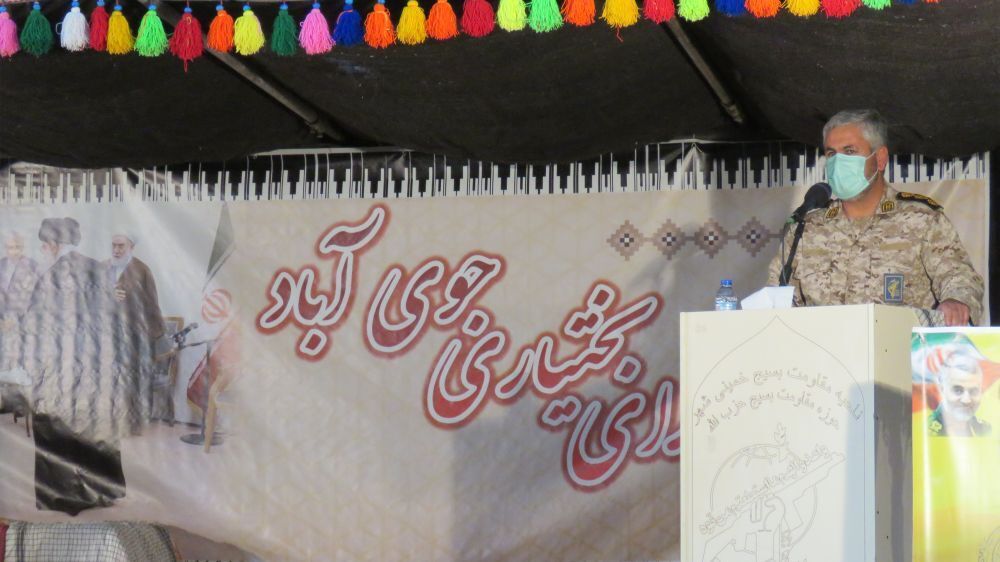 بختیاری جوی آباد
ناحیه مقاومت بسیج خمینی شهر
حوزه مقاومت بسیج حزب الله